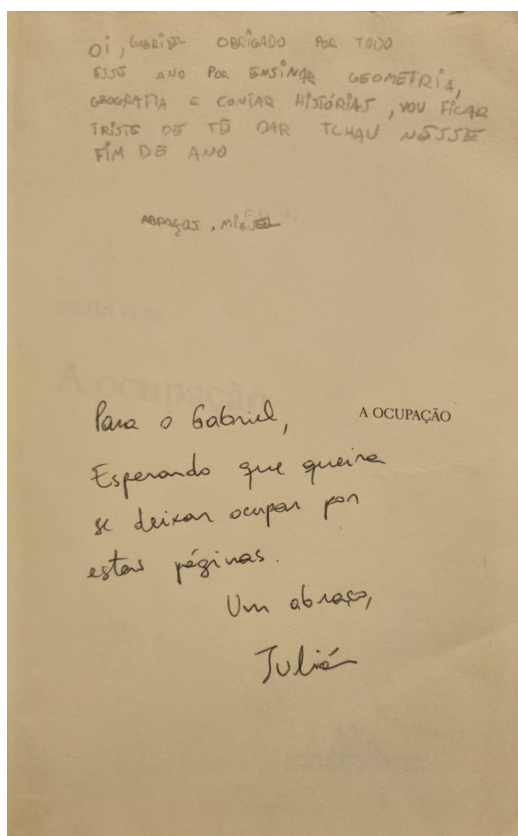 OI, GABRIEL OBRIGADO POR TODO
ESSE ANO POR ENSINAR GEOMETRIA,
GEOGRAFIA E CONTAR HISTÓRIAS, VOU FICAR
TRISTE DE TE DAR TCHAU NESSE
FIM DE ANO
ABRAÇOS, MIGUEL
A ocupação
A OCUPAÇÃO
Para o Gabriel,
Esperando que queira
se deixar ocupar por
estas páginas.
Um abraço,
Julián